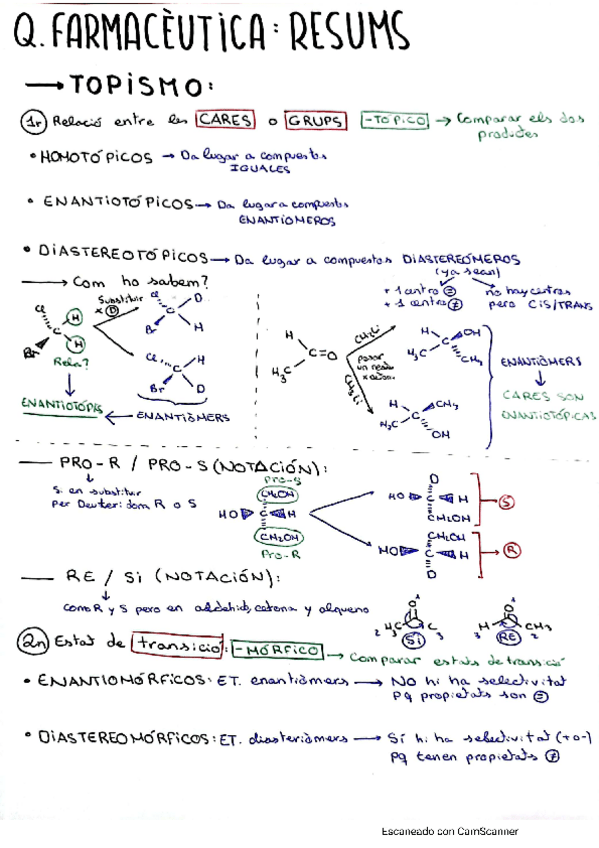 Q. FARMACÈUTICA: RESUMS
→ TOPISMO:
1r Relació entre les CARES o GRUPS -TÒPICO → Comparar els dos
productes
• HOMOTÓPICOS → Da lugar a compuestos
IGUALES
• ENANTIOTÓPICOS → Da lugar a compuestos
ENANTIÓMEROS
• DIASTEREOTÓPICOS → Da lugar a compuestos DIASTEREÓMEROS
(ya sean)
→ Com ho sabem?
+ 1 centro =
+ 1 centro ≠
no hay centros
pero CIS/TRANS
Substituir
x D
Cl H
Br H
Rela?
ENANTIOTÒPICS
Cl D
Br H
Cl H
Br D
← ENANTIÒMERS
H
H₃C C=O
CH₃Li
CH₃Li
H OH
H₃C C CH₃
H CH₃
H₃C C OH
ENANTIÒMERS
CARES SON
ENANTIOTÓPICAS
— PRO-R / PRO-S (NOTACIÓN):
Si en substituir
per Deuteri dom R o S
Pro-S
CH₂OH
HO C H
CH₂OH
Pro-R
D
HO C H
CH₂OH
S
CH₂OH
HO C H
D
R
— RE / Si (NOTACIÓN):
Como R y S pero en aldehid, cetona y alqueno
O 1
2 H₃C C 3
Si
O 1
3 H CH₃ 2
RE
2n Estat de transició: -MÓRFICO → Comparar estats de transició
• ENANTIOMÓRFICOS: ET. enantiòmers → NO hi ha selectivitat
pq propietats son =
• DIASTEREOMÓRFICOS: ET. diasteriòmers → Sí hi ha selectivitat (+ o -)
pq tenen propietats ≠
Escaneado con CamScanner